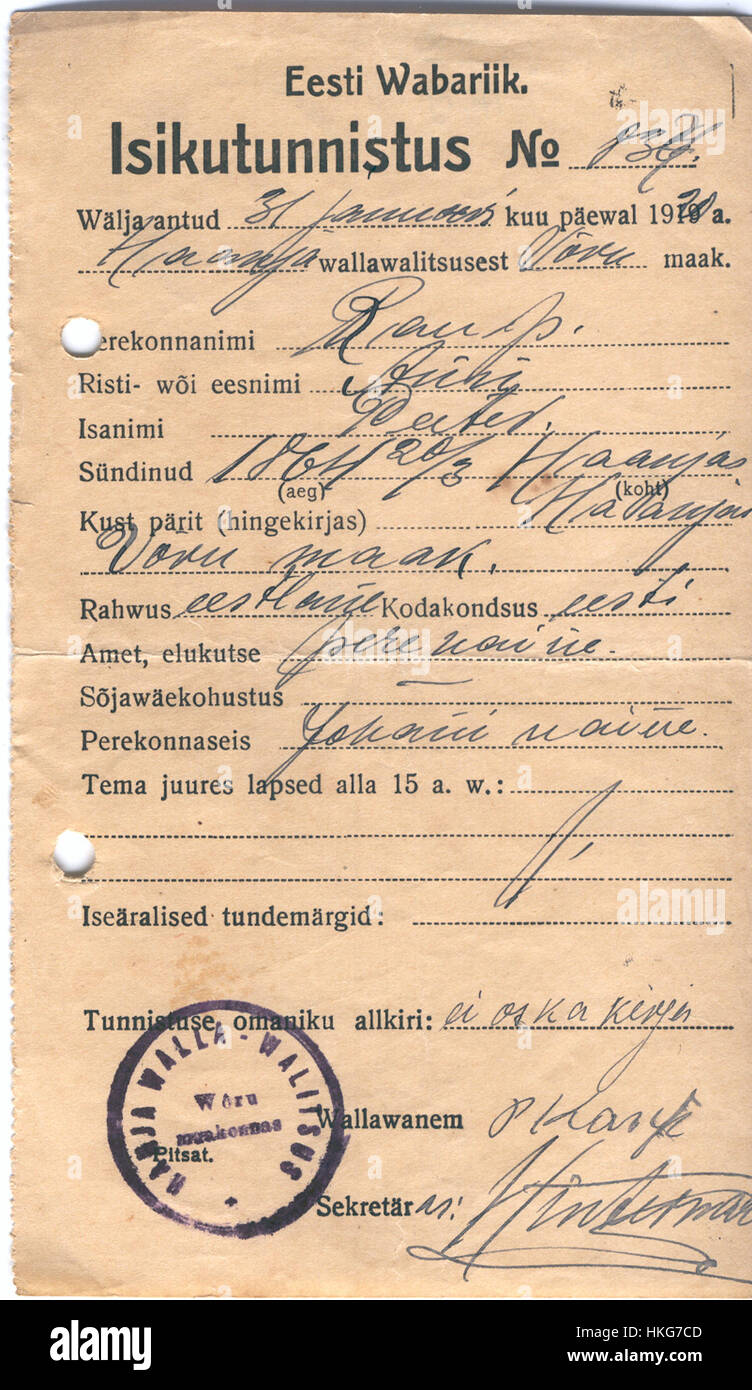 Eesti Wabariik.
Isikutunnistus No
Wälja antud 31 januari kuu päewal 1920 a.
Haanja wallawalitsusest Võru maak.
Perekonnanimi Raup.
Risti- wõi eesnimi
Isanimi Peter.
Sündinud 1864 20/3 Haanjas
(aeg) (koht)
Kust pärit (hingekirjas) Haanjas
Võru maak.
Rahwus eestlane Kodakondsus eesti
Amet, elukutse perenaine.
Sõjawäekohustus —
Perekonnaseis Johani naine.
Tema juures lapsed alla 15 a. w.:
Iseäralised tundemärgid:
Tunnistuse omaniku allkiri: ei oska kirja
HANJA WALLA-WALITSUS
Wõru
maakonnas
Pitsat.
Wallawanem
Sekretär as:
alamy
Image ID: HKG7CD
www.alamy.com